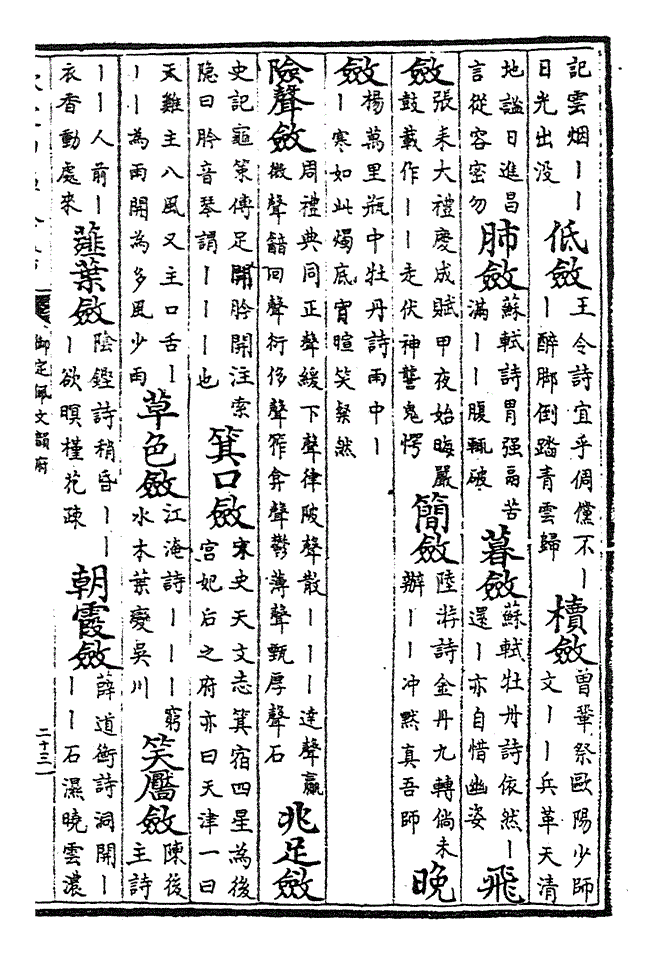 記雲烟丨丨
日光出没
低斂
王令詩宜乎倜儻不丨
丨醉脚倒踏青雲歸
櫝斂
曾鞏祭歐陽少師
文丨丨兵革天清
地謐日進昌
言從容密勿
肺斂
蘇軾詩胃强鬲苦
滿丨丨腹輒破
暮斂
蘇軾牡丹詩依然丨
還丨亦自惜幽姿
飛
斂
張耒大禮慶成賦甲夜始晦嚴
鼓載作丨丨走伏神讋鬼愕
簡斂
陸游詩金丹九轉倘未
辦丨丨冲默真吾師
晚
斂
楊萬里瓶中牡丹詩雨中丨
丨寒如此燭底宵暄笑粲然
險聲斂
周禮典同正聲緩下聲律陂聲散丨丨丨達聲贏
微聲韽回聲衍侈聲筰弇聲鬱薄聲甄厚聲石
兆足斂
史記龜策傳足開肣開注索
隐曰肣音琴謂丨丨丨也
箕口斂
宋史天文志箕宿四星為後
宫妃后之府亦曰天津一曰
天雞主八風又主口舌丨
丨丨為雨開為多風少雨
草色斂
江淹詩丨丨丨窮
水木葉變吳川
笑靨斂
陳後
主詩
丨丨人前丨
衣香動處來
薤葉斂
陰鏗詩稍昏丨丨
丨欲暝槿花疎
朝霞斂
薛道衡詩洞開丨
丨丨石濕曉雲濃
御定佩文韻府
二十三